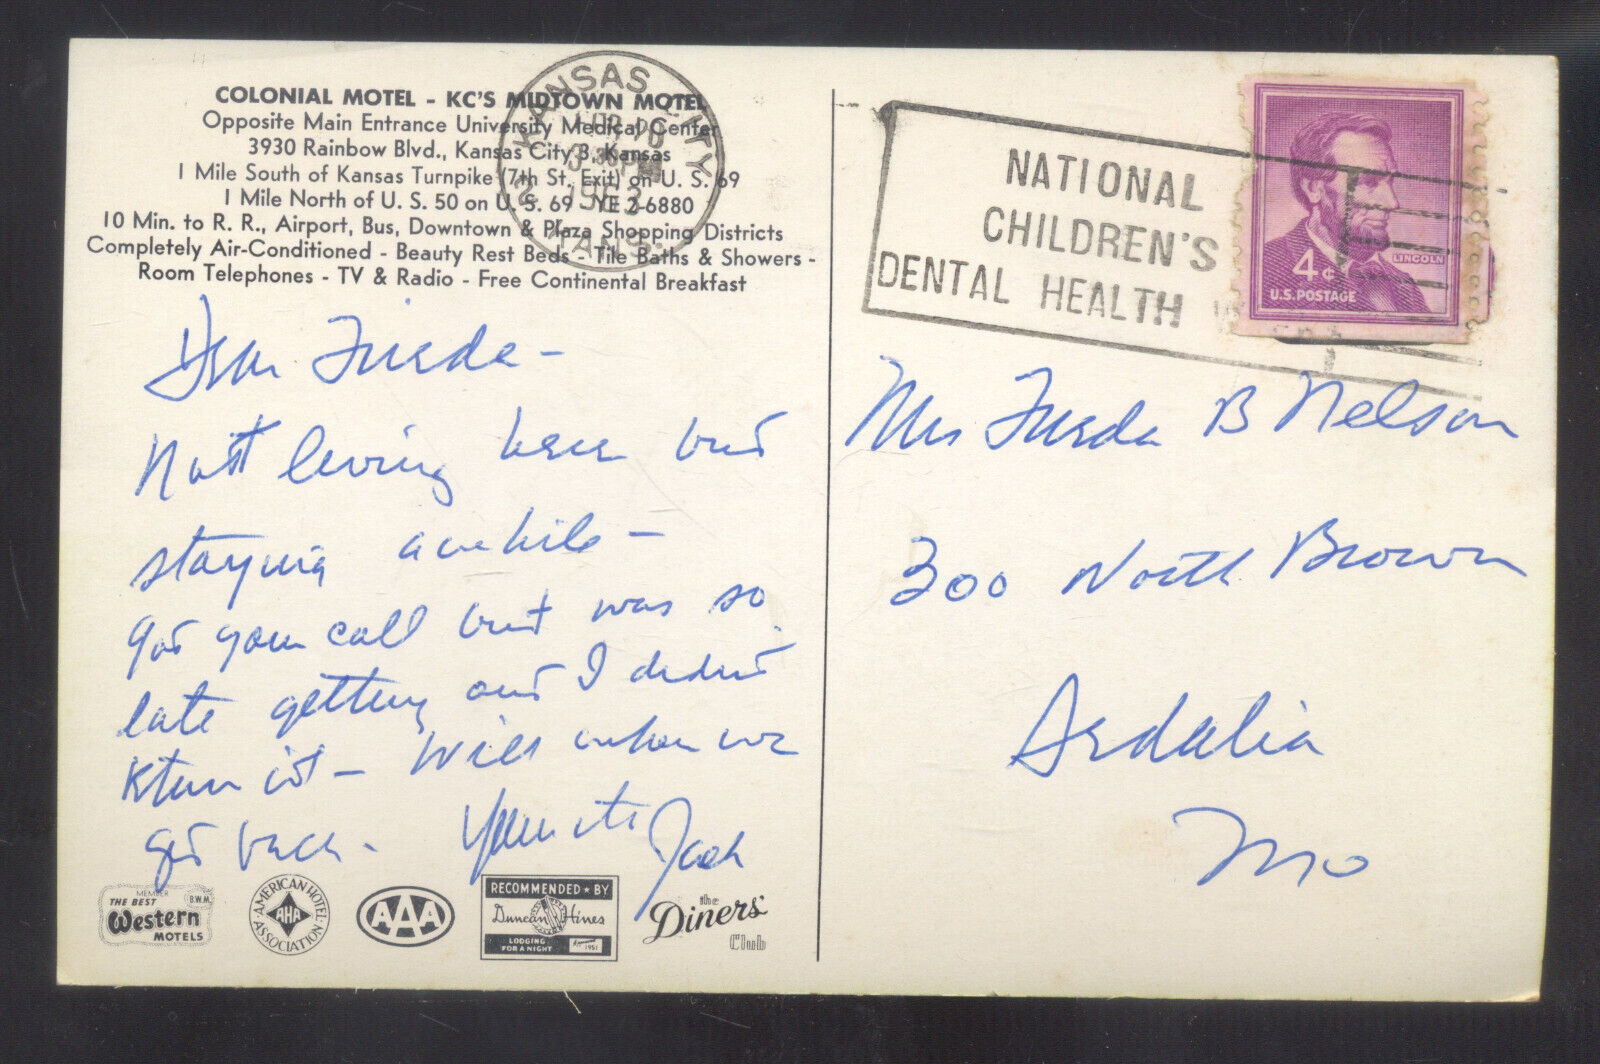 COLONIAL MOTEL - KC'S MIDTOWN MOTEL
Opposite Main Entrance University Medical Center
3930 Rainbow Blvd., Kansas City 3, Kansas
1 Mile South of Kansas Turnpike (7th St. Exit) on U. S. 69
1 Mile North of U. S. 50 on U. S. 69 YE 2-6880
10 Min. to R. R., Airport, Bus, Downtown & Plaza Shopping Districts
Completely Air-Conditioned - Beauty Rest Beds - Tile Baths & Showers -
Room Telephones - TV & Radio - Free Continental Breakfast
KANSAS CITY
PM
1963
KANS.
NATIONAL
CHILDREN'S
DENTAL HEALTH
LINCOLN
4¢
U.S. POSTAGE
Dear Frieda -
Not living here but
staying awhile -
got your call but was so
late getting and I didn't
return it - Will when we
get back.
Jack
Mrs Frieda B Nelson
300 North Brown
Sedalia
Mo
MEMBER
THE BEST B.W.M.
Western
MOTELS
AMERICAN HOTEL
AHA
ASSOCIATION
AAA
RECOMMENDED ★ BY
Duncan Hines
LODGING
FOR A NIGHT
1951
the
Diners'
Club